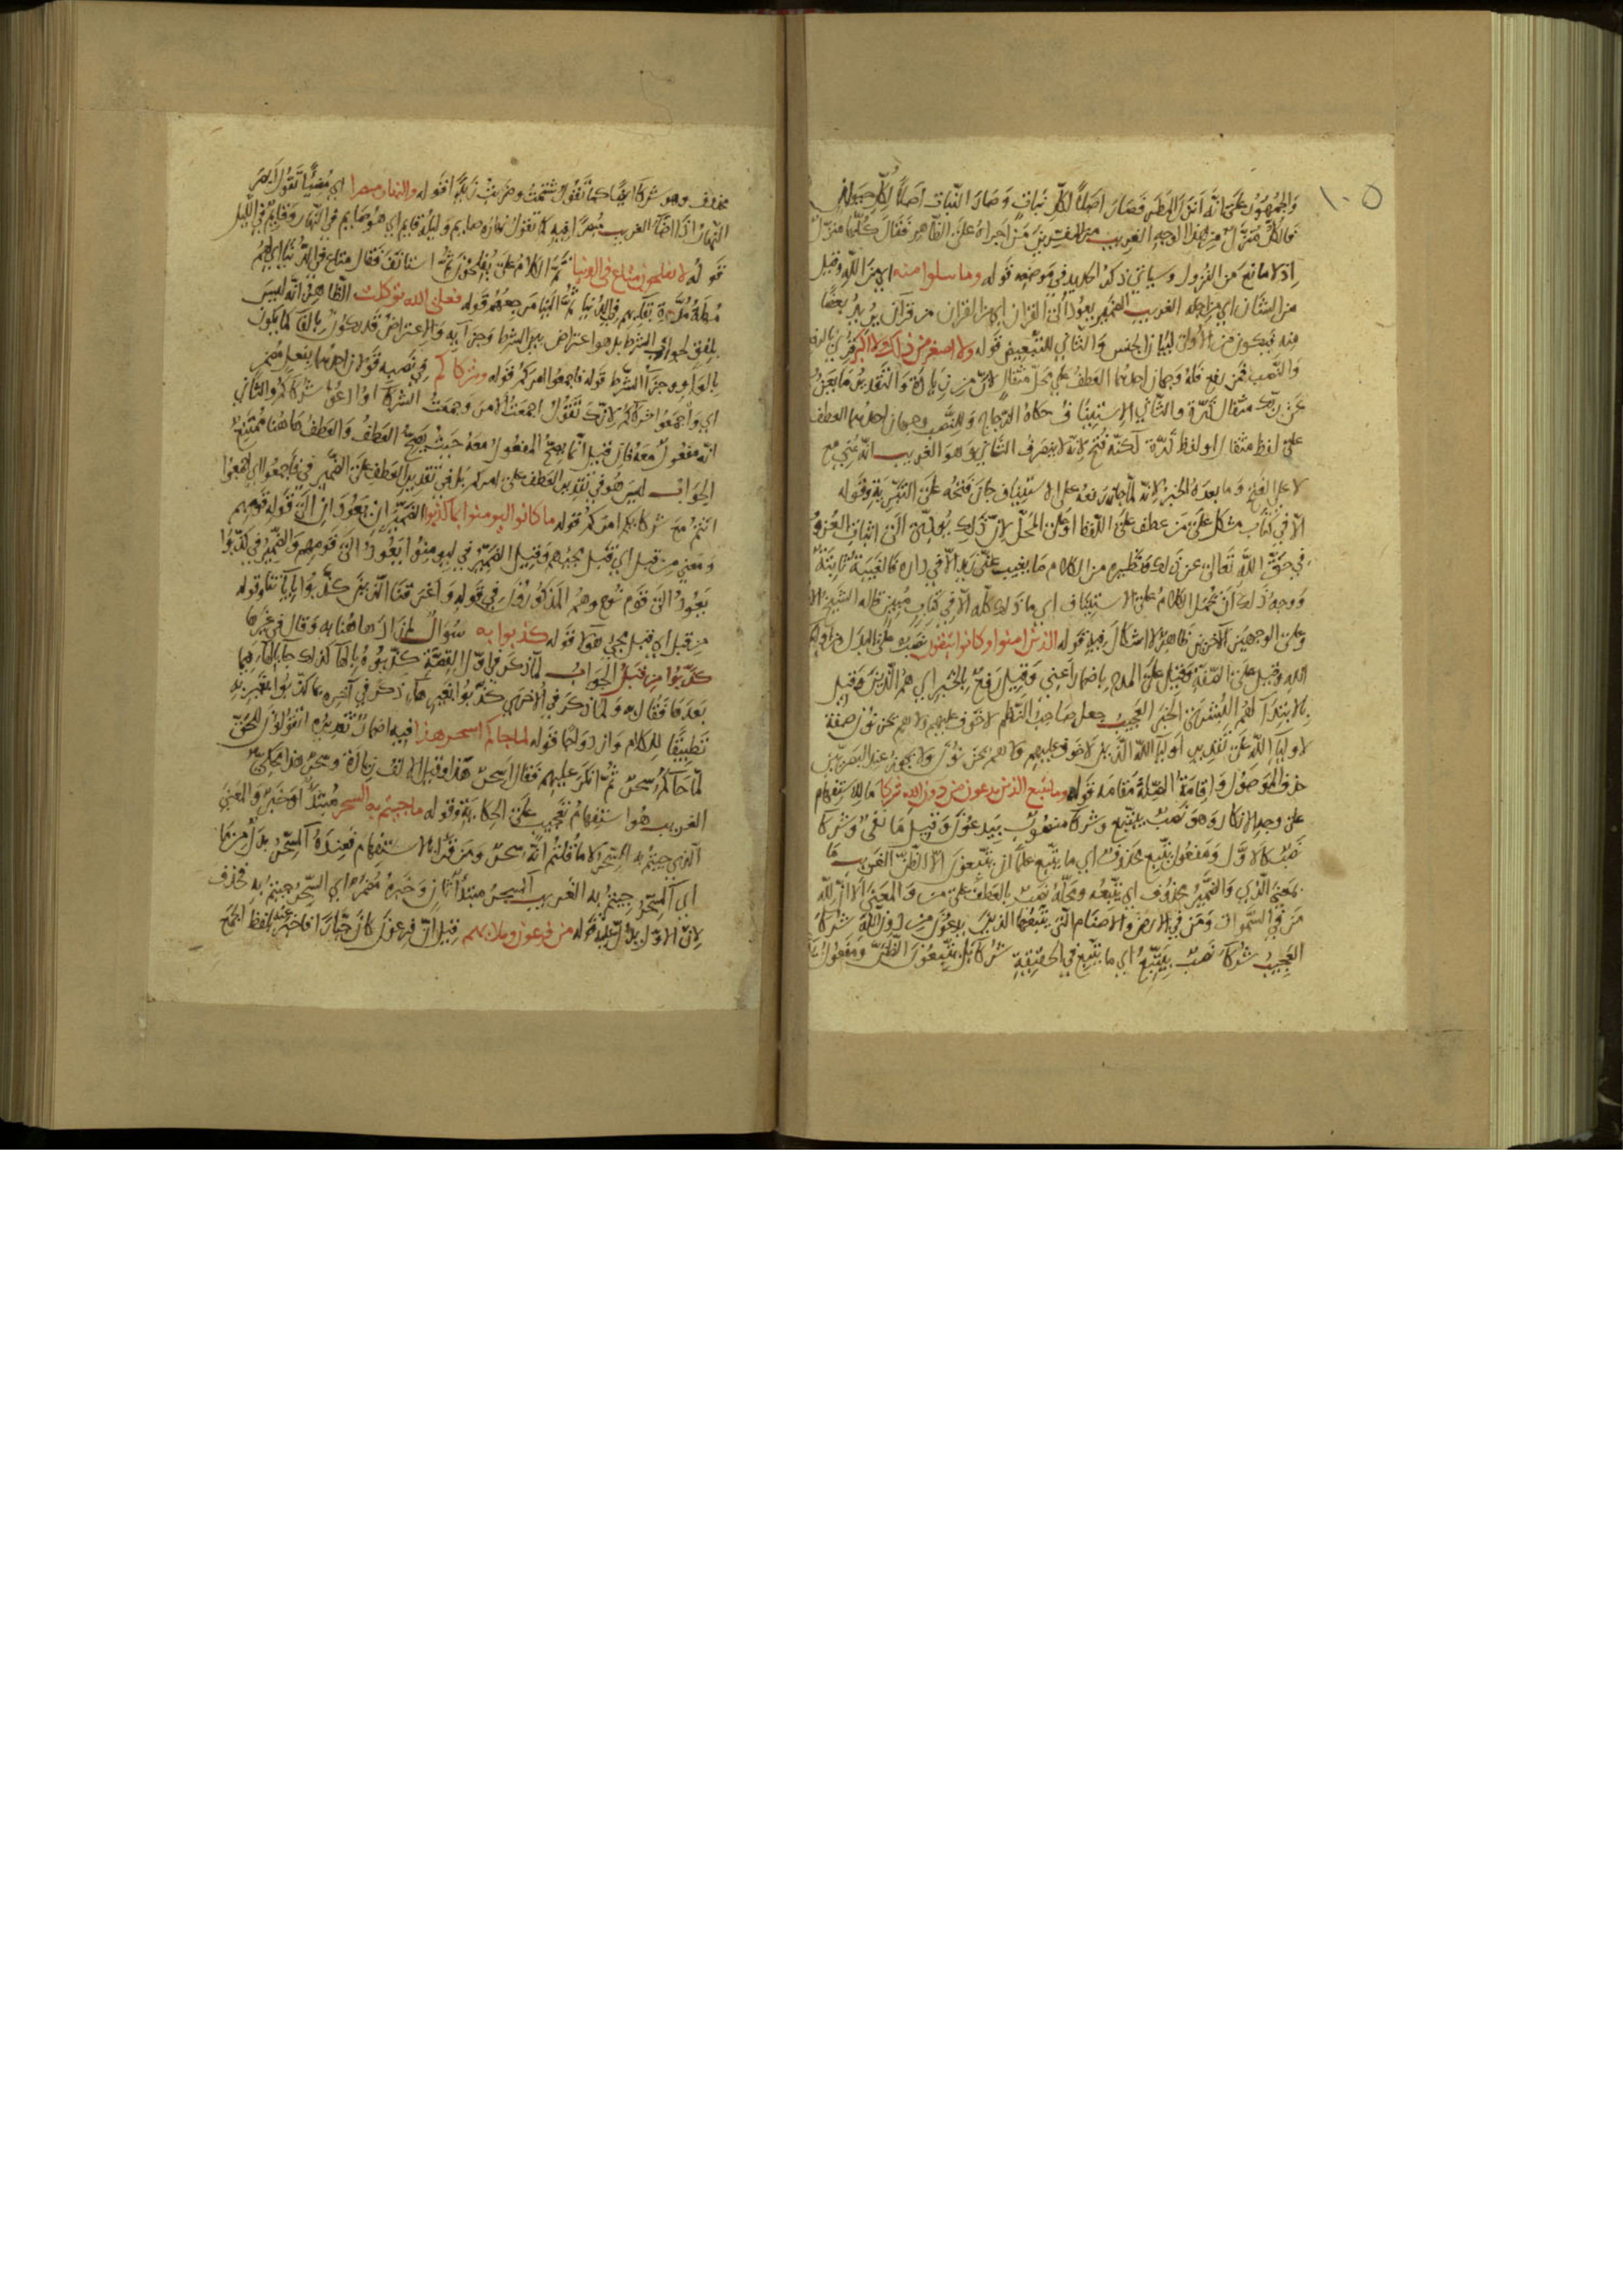 ١٠٥
والجمهور على انه انزل المطر فصار اصلا لكل نبات وصار النبات اصلا لكل حيوان
فالكل منزل من هذا الوجه الغريب من المفسرين من اجراه على الظاهر فقال كلها منزل
اذ لا مانع من النزول وسياتي ذكر الحديد في موضعه قوله وما تتلوا منه اي من الله وقيل
من الشان اي من اجله الغريب الضمير يعود الى القران اي من القران من قرآن يريد بعضا
منه فيكون من الاول لبيان الجنس والثاني للتبعيض قوله ولا اصغر من ذلك ولا اكبر قرئ بالرفع
والنصب فمن رفع فله وجهان احدهما العطف على محل مثقال لان من زيادة والتقدير ما يعزب
عن ربك مثقال ذرة والثاني الاستيناف حكاه الزجاج وللنصب وجهان احدهما العطف
على لفظ مثقال او لفظ ذرة لكنه فتح لانه لا ينصرف الثاني وهو الغريب انه مبني مع
لا على الفتح وما بعده الخبر لانه لما جاز رفعه على الاستيناف جاز فتحه على التبرية وقوله
الا في كتاب مشكل على من عطف على اللفظ او على المحل لان ذلك يودي الى اثبات العزوب
في حق الله تعالى عن ذلك ونظيره من الكلام ما يغيب عني زيد الا في داره فالغيبة ثابتة
ووجه ذلك ان يحمل الكلام على الاستيناف اي ما ذلك كله الا في كتاب مبين قاله الشيخ الا
وعلى الوجهين الآخرين ظاهر لا اشكال فيه قوله الذين امنوا وكانوا يتقون نصب على البدل من اولياء
الله وقيل على الصفة وقيل على المدح باضمار اعني وقيل رفع بالخبر اي هم الذين وقيل
بالابتداء لهم البشرى الخبر العجيب جعل صاحب النظم لا خوف عليهم ولا هم يحزنون صفة
لاولياء الله على تقدير اولياء الله الذين لا خوف عليهم ولا هم يحزنون ولا يجوز عند البصريين
حذف الموصول واقامة الصلة مقامه قوله وما يتبع الذين يدعون من دون الله شركا ما للاستفهام
على وجه الانكار وهو نصب بيتبع وشركا منصوب بيدعون وقيل ما نفي وشركا
نصب كالاول ومفعول يتبع محذوف اي ما يتبع علما ان يتبعون الا الظن الغريب ما
بمعنى الذي والضمير محذوف اي يتبعه ومحله نصب بالعطف على من والمعنى الا ان لله
من في السموات ومن في الارض والاصنام التي يتبعها الذين يدعون من دون الله شركا
العجيب شركا نصب بيتبع اي ما يتبع في الحقيقة شركا بل يتبعون الظن ومفعول
محذوف وهو شركا ايضا كما تقول شتمت وضربت زيدا قوله والنهار مبصرا اي مضيا تقول ابصر
النهار اذا اضاء الغريب مبصرا فيه كما تقول نهاره صايم وليله قايم اي هو صايم في النهار وقايم في الليل
قوله لا يفلحون متاع في الدنيا تم الكلام على يفلحون ثم استانف فقال متاع في الدنيا اي لهم
مهلة مدة بقايهم في الدنيا ثم الينا مرجعهم قوله فعلى الله توكلت الظاهر انه ليس
يلفق لجواب الشرط بل هو اعتراض بين الشرط وجزآيه والاعتراض قد يكون بالفا كما يكون
بالواو وجزا الشرط قوله فاجمعوا امركم قوله وشركاكم في نصبه قولان احدهما بفعل مضمر
اي واجمعوا شركاكم لانك تقول اجمعت الامر وجمعت الشركا او ادعوا شركاكم والثاني
انه مفعول معه فان قيل انما يصح المفعول معه حيث يصح العطف والعطف هاهنا ممتنع
الجواب ليس هو في تقدير العطف على امركم بل في تقدير العطف على الضمير في فاجمعوا اي اجمعوا
انتم مع شركايكم امركم قوله ما كانوا ليومنوا بما كذبوا الضميران يعودان الى قوله قومهم
ومعنى من قبل اي قبل مجيهم وقيل الضمير في ليومنوا يعود الى قومهم والضمير في كذبوا
يعود الى قوم نوح وهم المذكورون في قوله واغرقنا الذين كذبوا باياتنا وقوله
من قبل اي قبل مجي هولا قوله كذبوا به سؤال لم زاد هاهنا به وقال في غيرها
كذبوا من قبل الجواب لما ذكر في اول القصة كذبوه بالها كذلك جا بالها فيما
بعدها فقال به ولما ذكر في الاخرى كذبوا بغير ها ذكر في آخره بما كذبوا بغير به
تطبيقا للكلام وازدواجا قوله لما جاكم اسحر هذا فيه اضمار تقديره اتقولون للحق
لما جاكم سحر ثم انكر عليهم فقال اسحر هذا وقيل الالف زيادة وسحر هذا محكي
الغريب هو استفهام تعجب على الحكاية وقوله ما جيتم به السحر مبتدا وخبر والمعنى
الذي جيتم به السحر لا ما قلتم انه سحر ومن قرا بالاستفهام فعنده آلسحر بدل من ما
اي آلسحر جيتم به الغريب آلسحر مبتدا ثان وخبره مضمر اي السحر جيتم به فحذف
لان الاول يدل عليه قوله من فرعون وملائهم قيل ان فرعون كان جبارا فاخبر عنه بلفظ الجمع